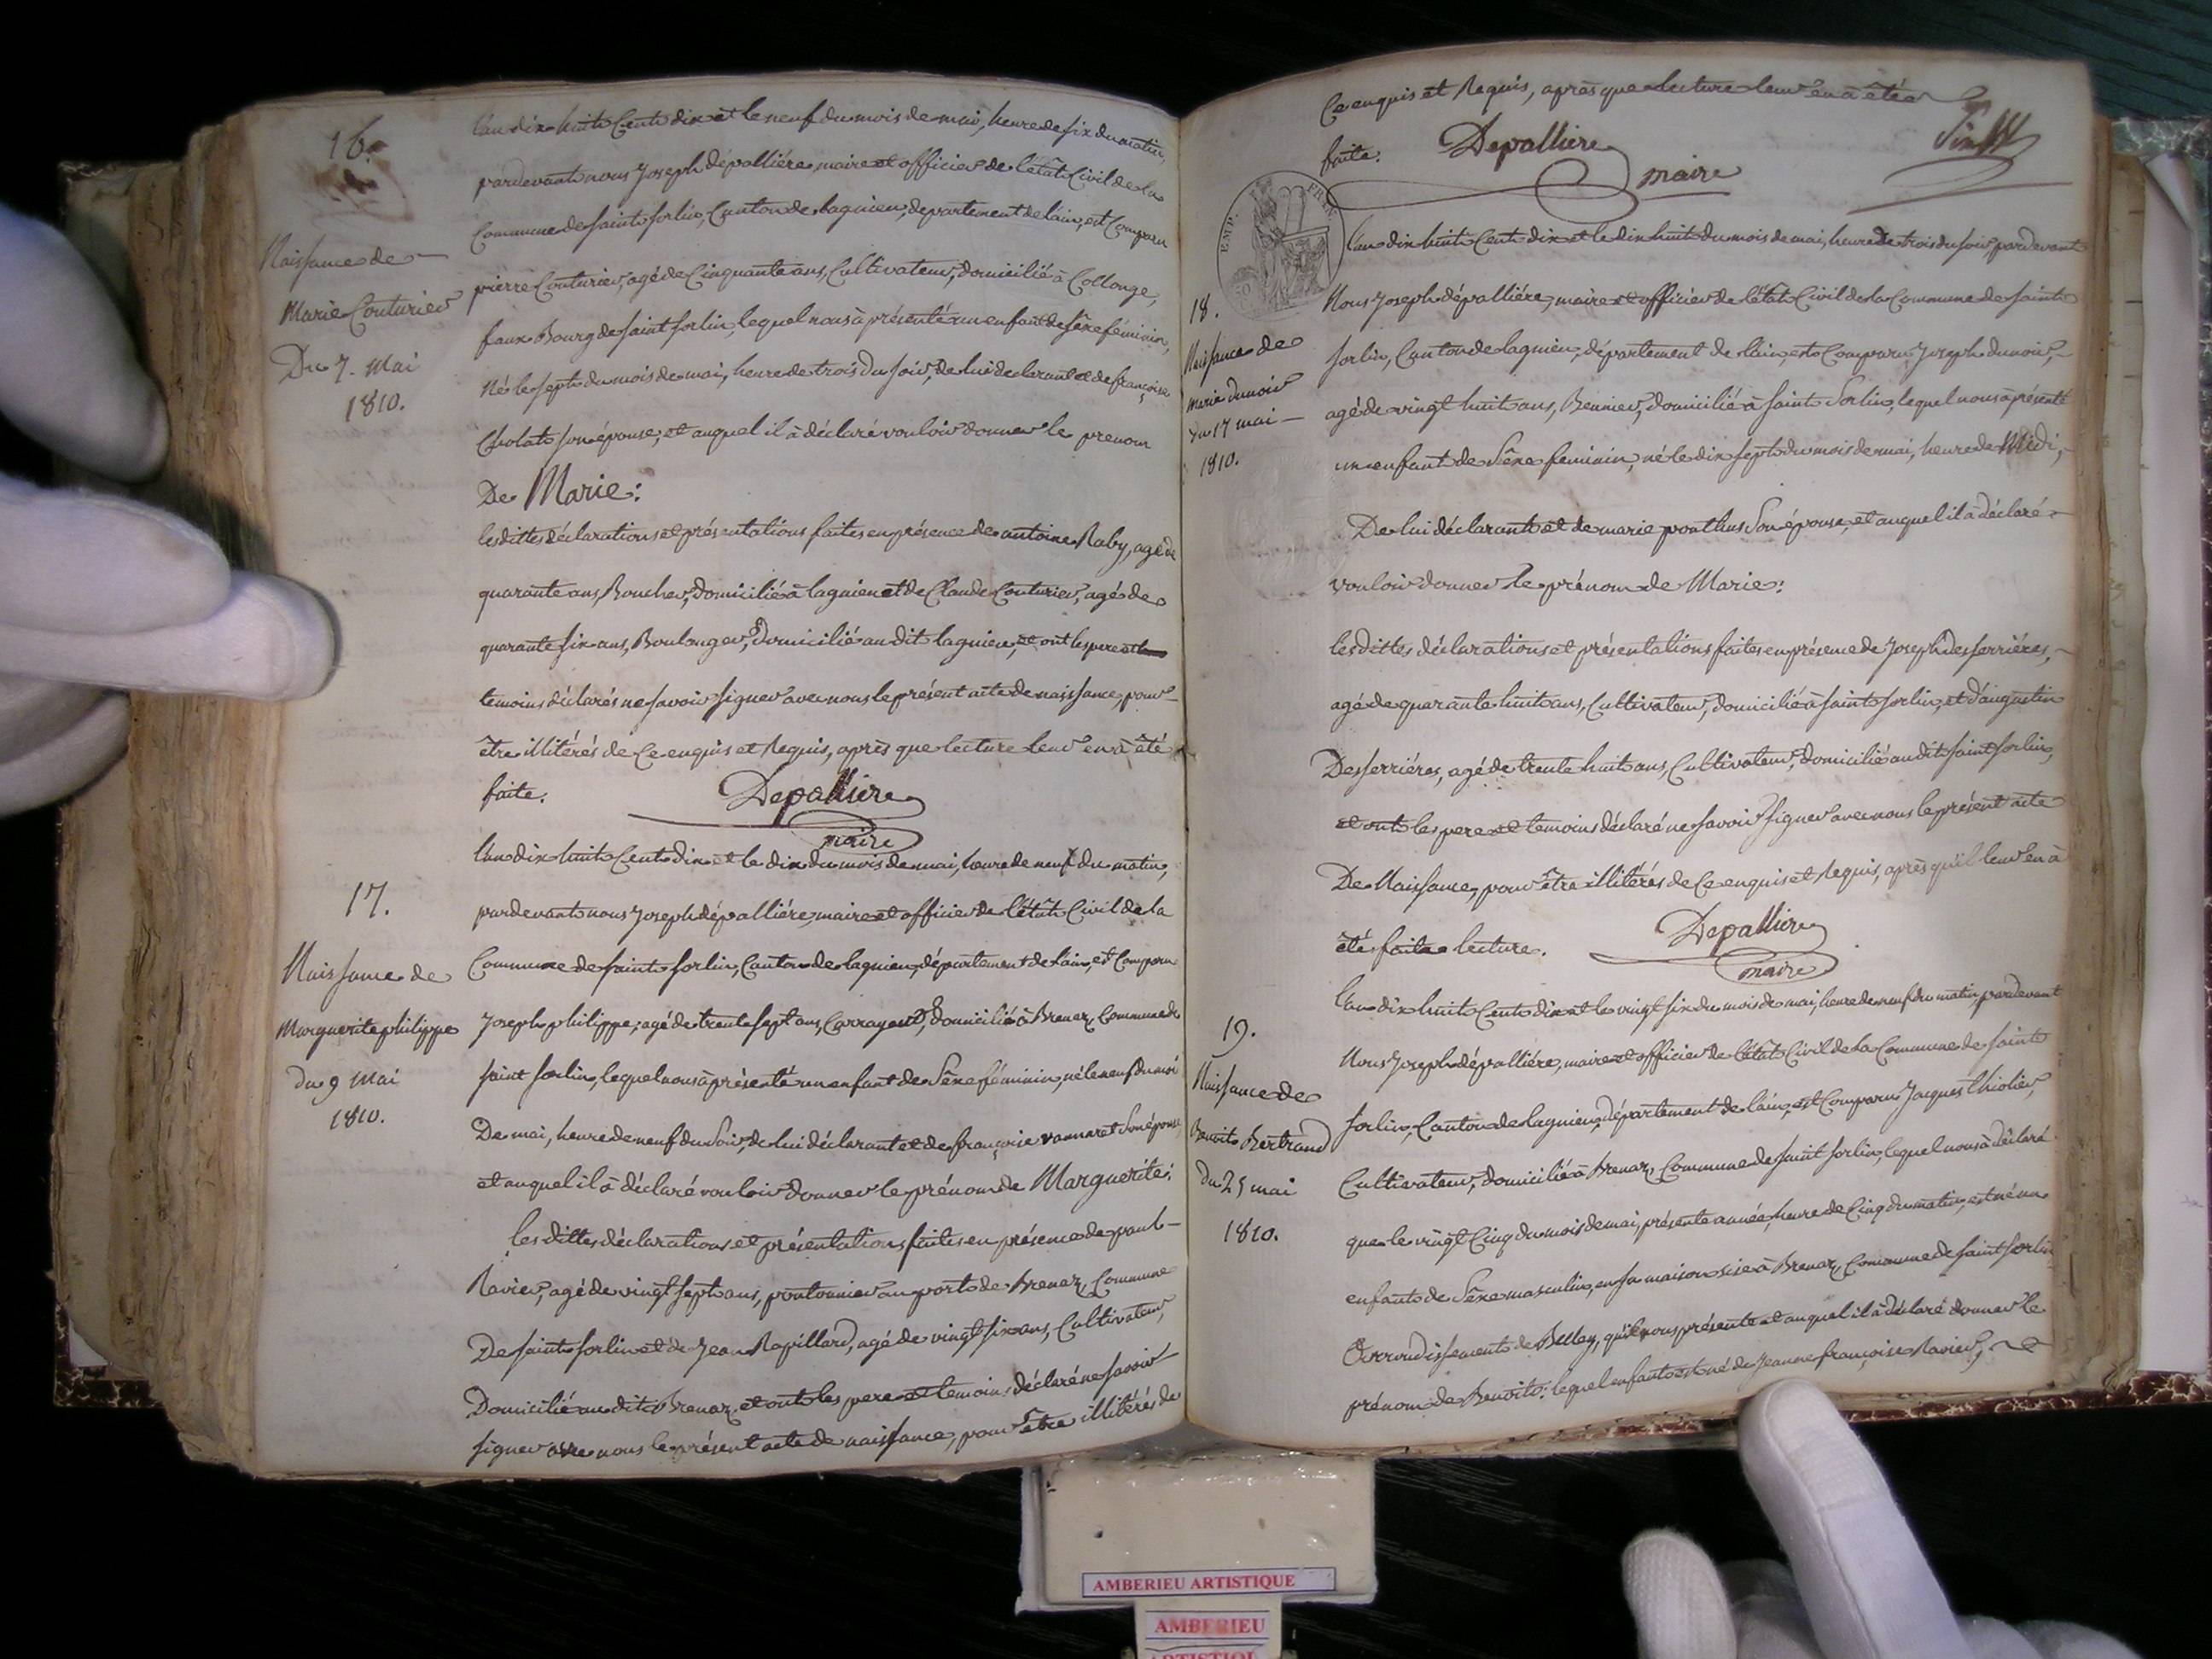 16.
Naissance de
Marie Couturier
Du 7. Mai
1810.
L'an dix huit Cent dix et le neuf du mois de mai, heure de six du matin,
pardevant nous Joseph dépalliére, maire et officier de l'êtât Civil de la
Commune de saint sorlin, Canton de lagnieu, departement de lain, est Comparu
pierre Couturier, agé de Cinquante ans, Cultivateur, domicilié à Collonge,
faux Bourg de saint sorlin, lequel nous à présenté un enfant de sêxe féminin,
Né le sept du mois de mai, heure de trois du soir, de lui declarant et de françoise
Cholat son épouse, et auquel il à déclaré vouloir donner le prenom
De Marie:
lesdittes déclarations et présentations faites en présence de antoine Raby, agé de
quarante ans, Boucher, domicilié à lagnieu et de Claude Couturier, agé de
quarante six ans, Boulanger, Domicilié au dit lagnieu, et ont les pere et
temoins déclarés ne savoir signer avec nous le présent acte de naissance, pour
être illitérés de Ce enquis et Requis, après que lecture leur en à été
faite.
Depalliere
maire
17.
Naissance de
Marguerite philippe
du 9 Mai
1810.
L'an dix huit Cent dix et le dix du mois de mai, heure de neuf du matin,
pardevant nous Joseph dépalliére, maire et officier de l'êtât Civil de la
Commune de saint sorlin, Canton de lagnieu, département de lain, est Comparu
Joseph philippe, agé de trente sept ans, Carrayeur, domicilié à Brenaz, Commune de
saint sorlin, lequel nous à présenté un enfant de Sêxe féminin, né le neuf du moi
De mai, heure de neuf du Soir, de lui déclarant et de françoise vannaret Son épouse
et auquel il à déclaré vouloir donner le prénom de Marguerite:
Les dittes déclarations et présentations faites en présence de paul
Ravier, agé de vingt sept ans, pontonnier au port de Brenaz, Commune
De saint sorlin et de Jean Rapillard, agé de vingt six ans, Cultivateur,
Domicilié au dit Brenaz, et ont les pere et temoins déclaré ne savoir
signer avec nous le présent acte de naissance, pour être illitérés de
Ce enquis et Requis, après que lecture leur en à été
faite.
Depalliere
maire
EMP.
FRAN.
18.
Naissance de
Marie dunoir
du 17 mai
1810.
L'an dix huit Cent dix et le dix huit du mois de mai, heure de trois du soir, pardevant
Nous Joseph dépalliére, maire et officier de l'êtât Civil de la Commune de saint
sorlin, Canton de lagnieu, département de lain, est Comparu Joseph dunoir,
agé de vingt huit ans, Bennier, domicilié à saint Sorlin, lequel nous à présenté
un enfant de Sêxe feminin, né le dix sept du mois de mai, heure de Midi,
De lui déclarant et de marie ponthus Son épouse, et auquel il à déclaré
vouloir donner le prénom de Marie:
lesdittes déclarations et présentations faites en présence de Joseph desserriéres,
agé de quarante huit ans, Cultivateur, domicilié à saint sorlin, et d'augustin
Desserriéres, agé de trente huit ans, Cultivateur, domicilié au dit saint sorlin,
et ont les pere et temoins déclaré ne savoir signer avec nous le présent acte
De Naissance, pour être illitérés de Ce enquis et Requis, après qu'il leur en à
été faite lecture.
Depalliere
maire
19.
Naissance de
Benoit Bertrand
Du 25 mai
1810.
L'an dix huit Cent dix et le vingt six du mois de mai, heure de neuf du matin, pardevant
Nous Joseph dépalliére, maire et officier de l'êtât Civil de la Commune de saint
sorlin, Canton de lagnieu, département de lain, est Comparu Jacques thiolier,
Cultivateur, domicilié à Brenaz, Commune de saint sorlin, lequel nous à déclaré
que le vingt Cinq du mois de mai, présente année, heure de Cinq du matin, est né un
enfant de Sêxe masculin, en sa maison sise à Brenaz, Commune de saint sorlin
Arrondissement de Belley, qu'il nous présente et auquel il à déclaré donner le
prénom de Benoit: lequel enfant est né de Jeanne françoise Ravier,
AMBERIEU ARTISTIQUE
AMBERIEU
ARTISTIQUE